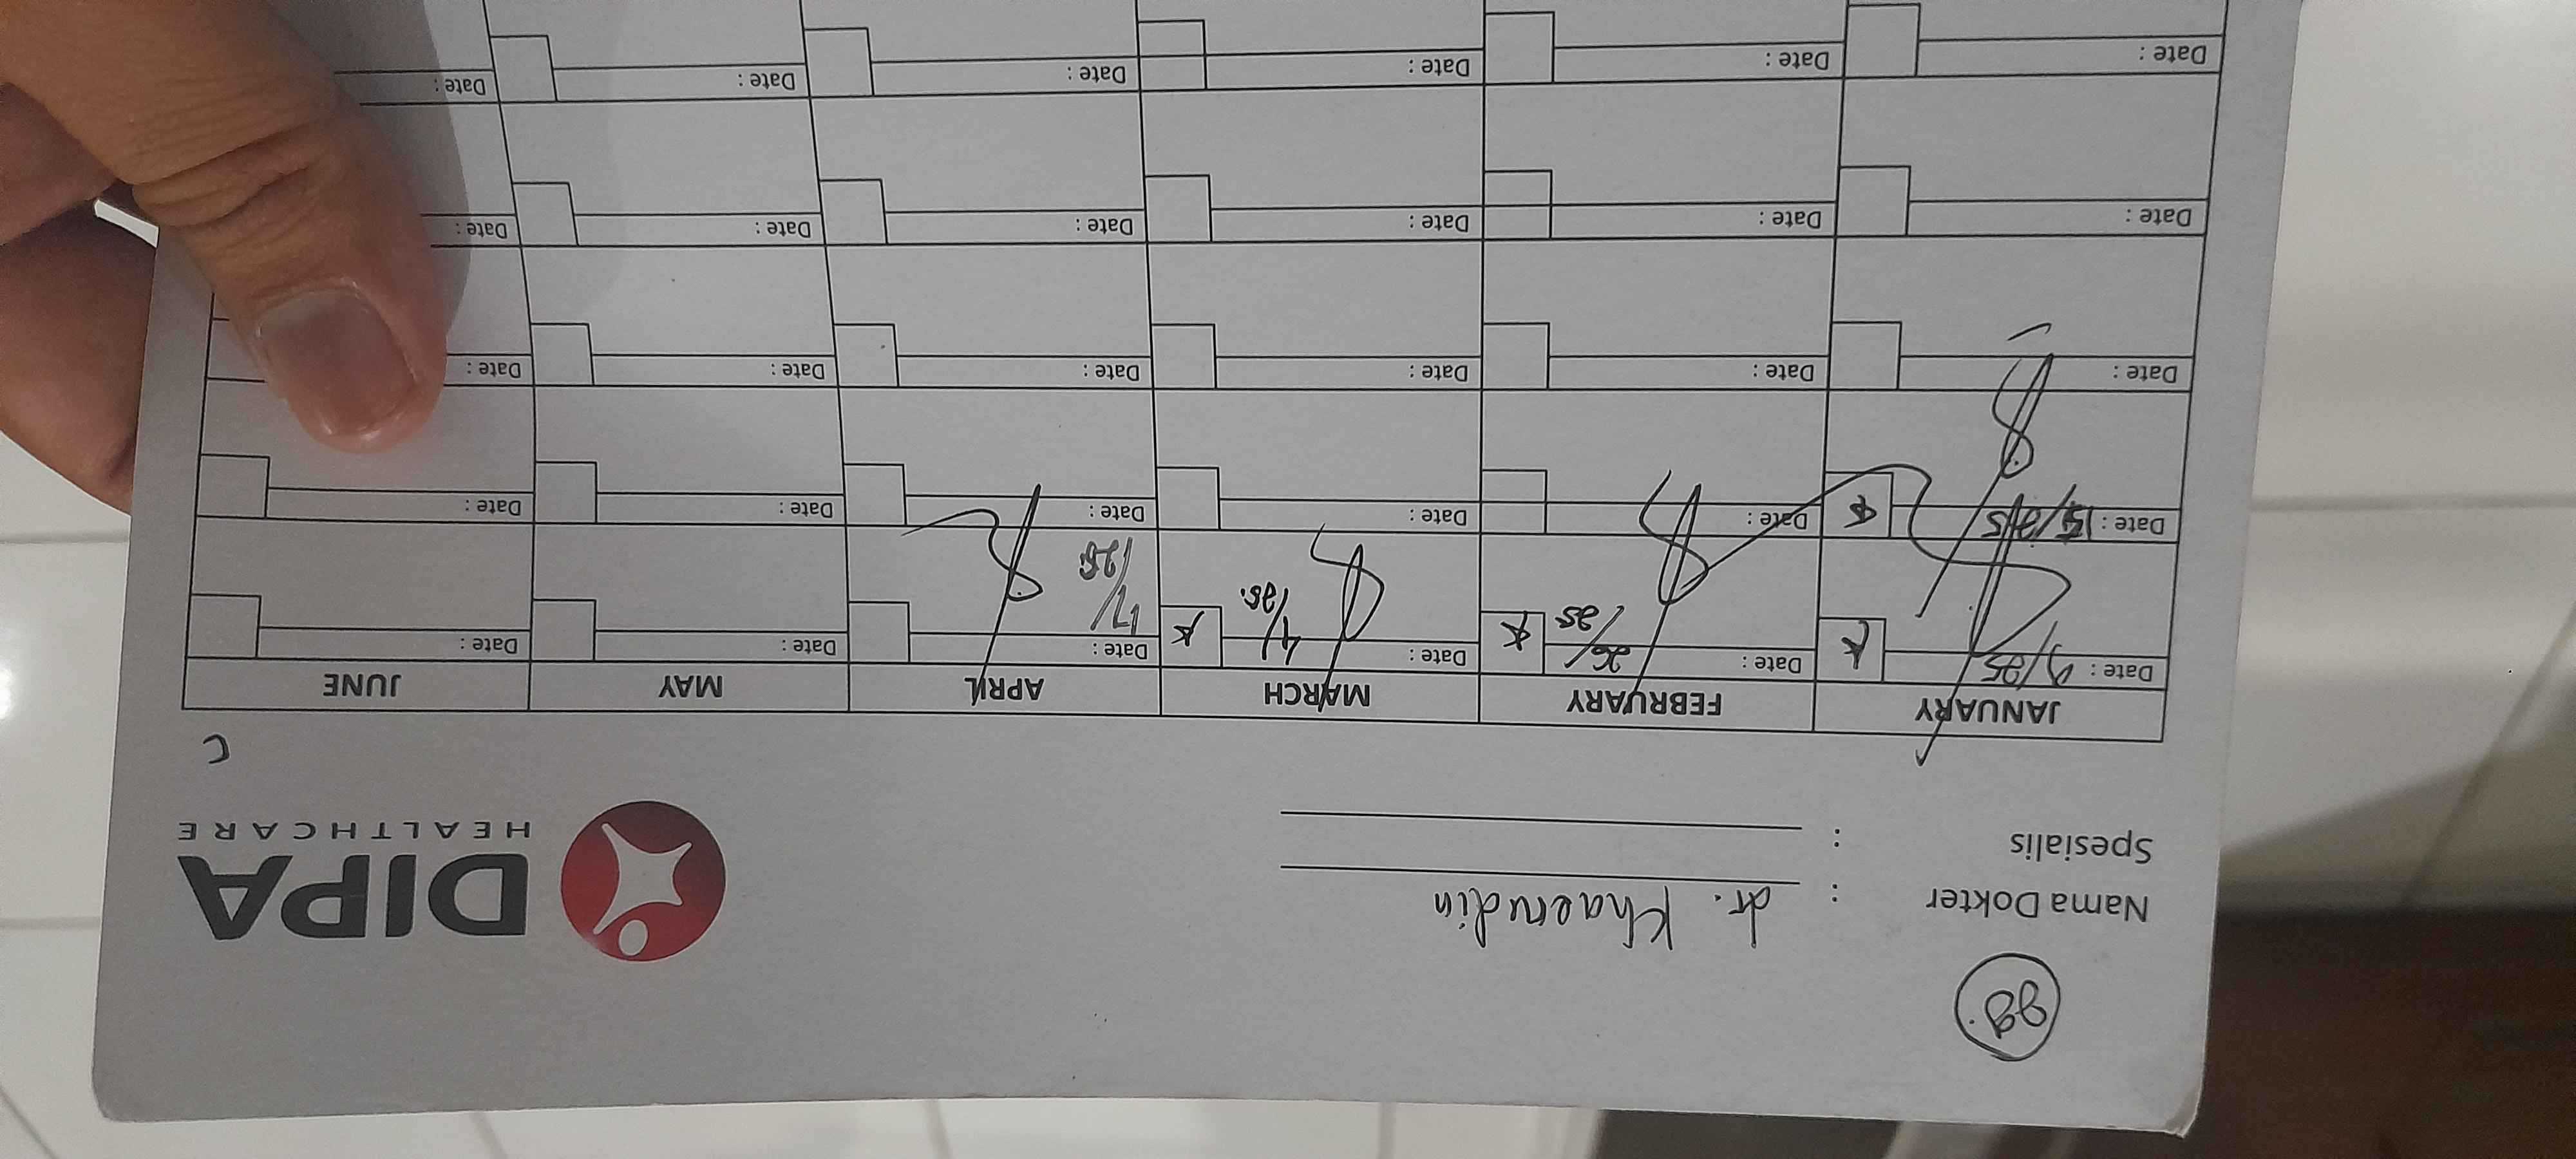 98.
Nama Dokter : dr. Khaerudin
Spesialis :
DIPA
HEALTHCARE
C
JANUARY FEBRUARY MARCH APRIL MAY JUNE
Date : 9/25 Date : 26/25 Date : 4/25. Date : 17/25 Date : Date :
Date : Date : Date : Date : Date : Date :
Date : Date : Date : Date : Date : Date :
Date : Date : Date : Date : Date : Date :
Date : Date : Date : Date : Date : Date :